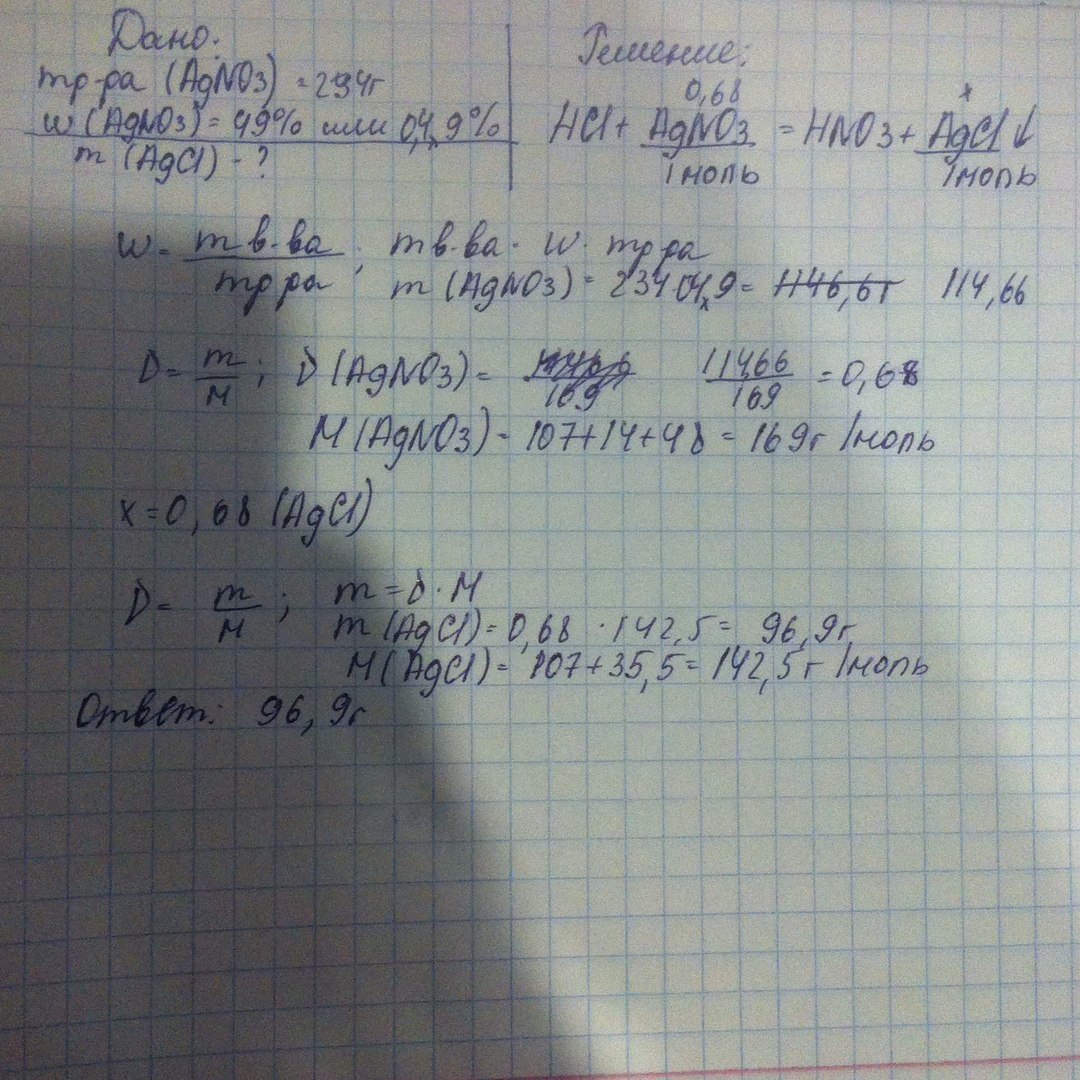 Дано:
mр-ра (AgNO3) = 234г
w (AgNO3) = 49% или 0,49%
m (AgCl) - ?
Решение:
0,68 x
HCl + AgNO3 = HNO3 + AgCl ↓
1моль 1моль
w = m в-ва / mр ра ; m в-ва · w · mр ра
m (AgNO3) = 234 0,49 = 1146,6г 114,66
D = m / M ; D (AgNO3) = 169 114,66 / 169 = 0,68
M (AgNO3) = 107+14+48 = 169г/моль
x = 0,68 (AgCl)
D = m / M ; m = D · M
m (AgCl) = 0,68 · 142,5 = 96,9г
M (AgCl) = 107+35,5 = 142,5г/моль
Ответ: 96,9г